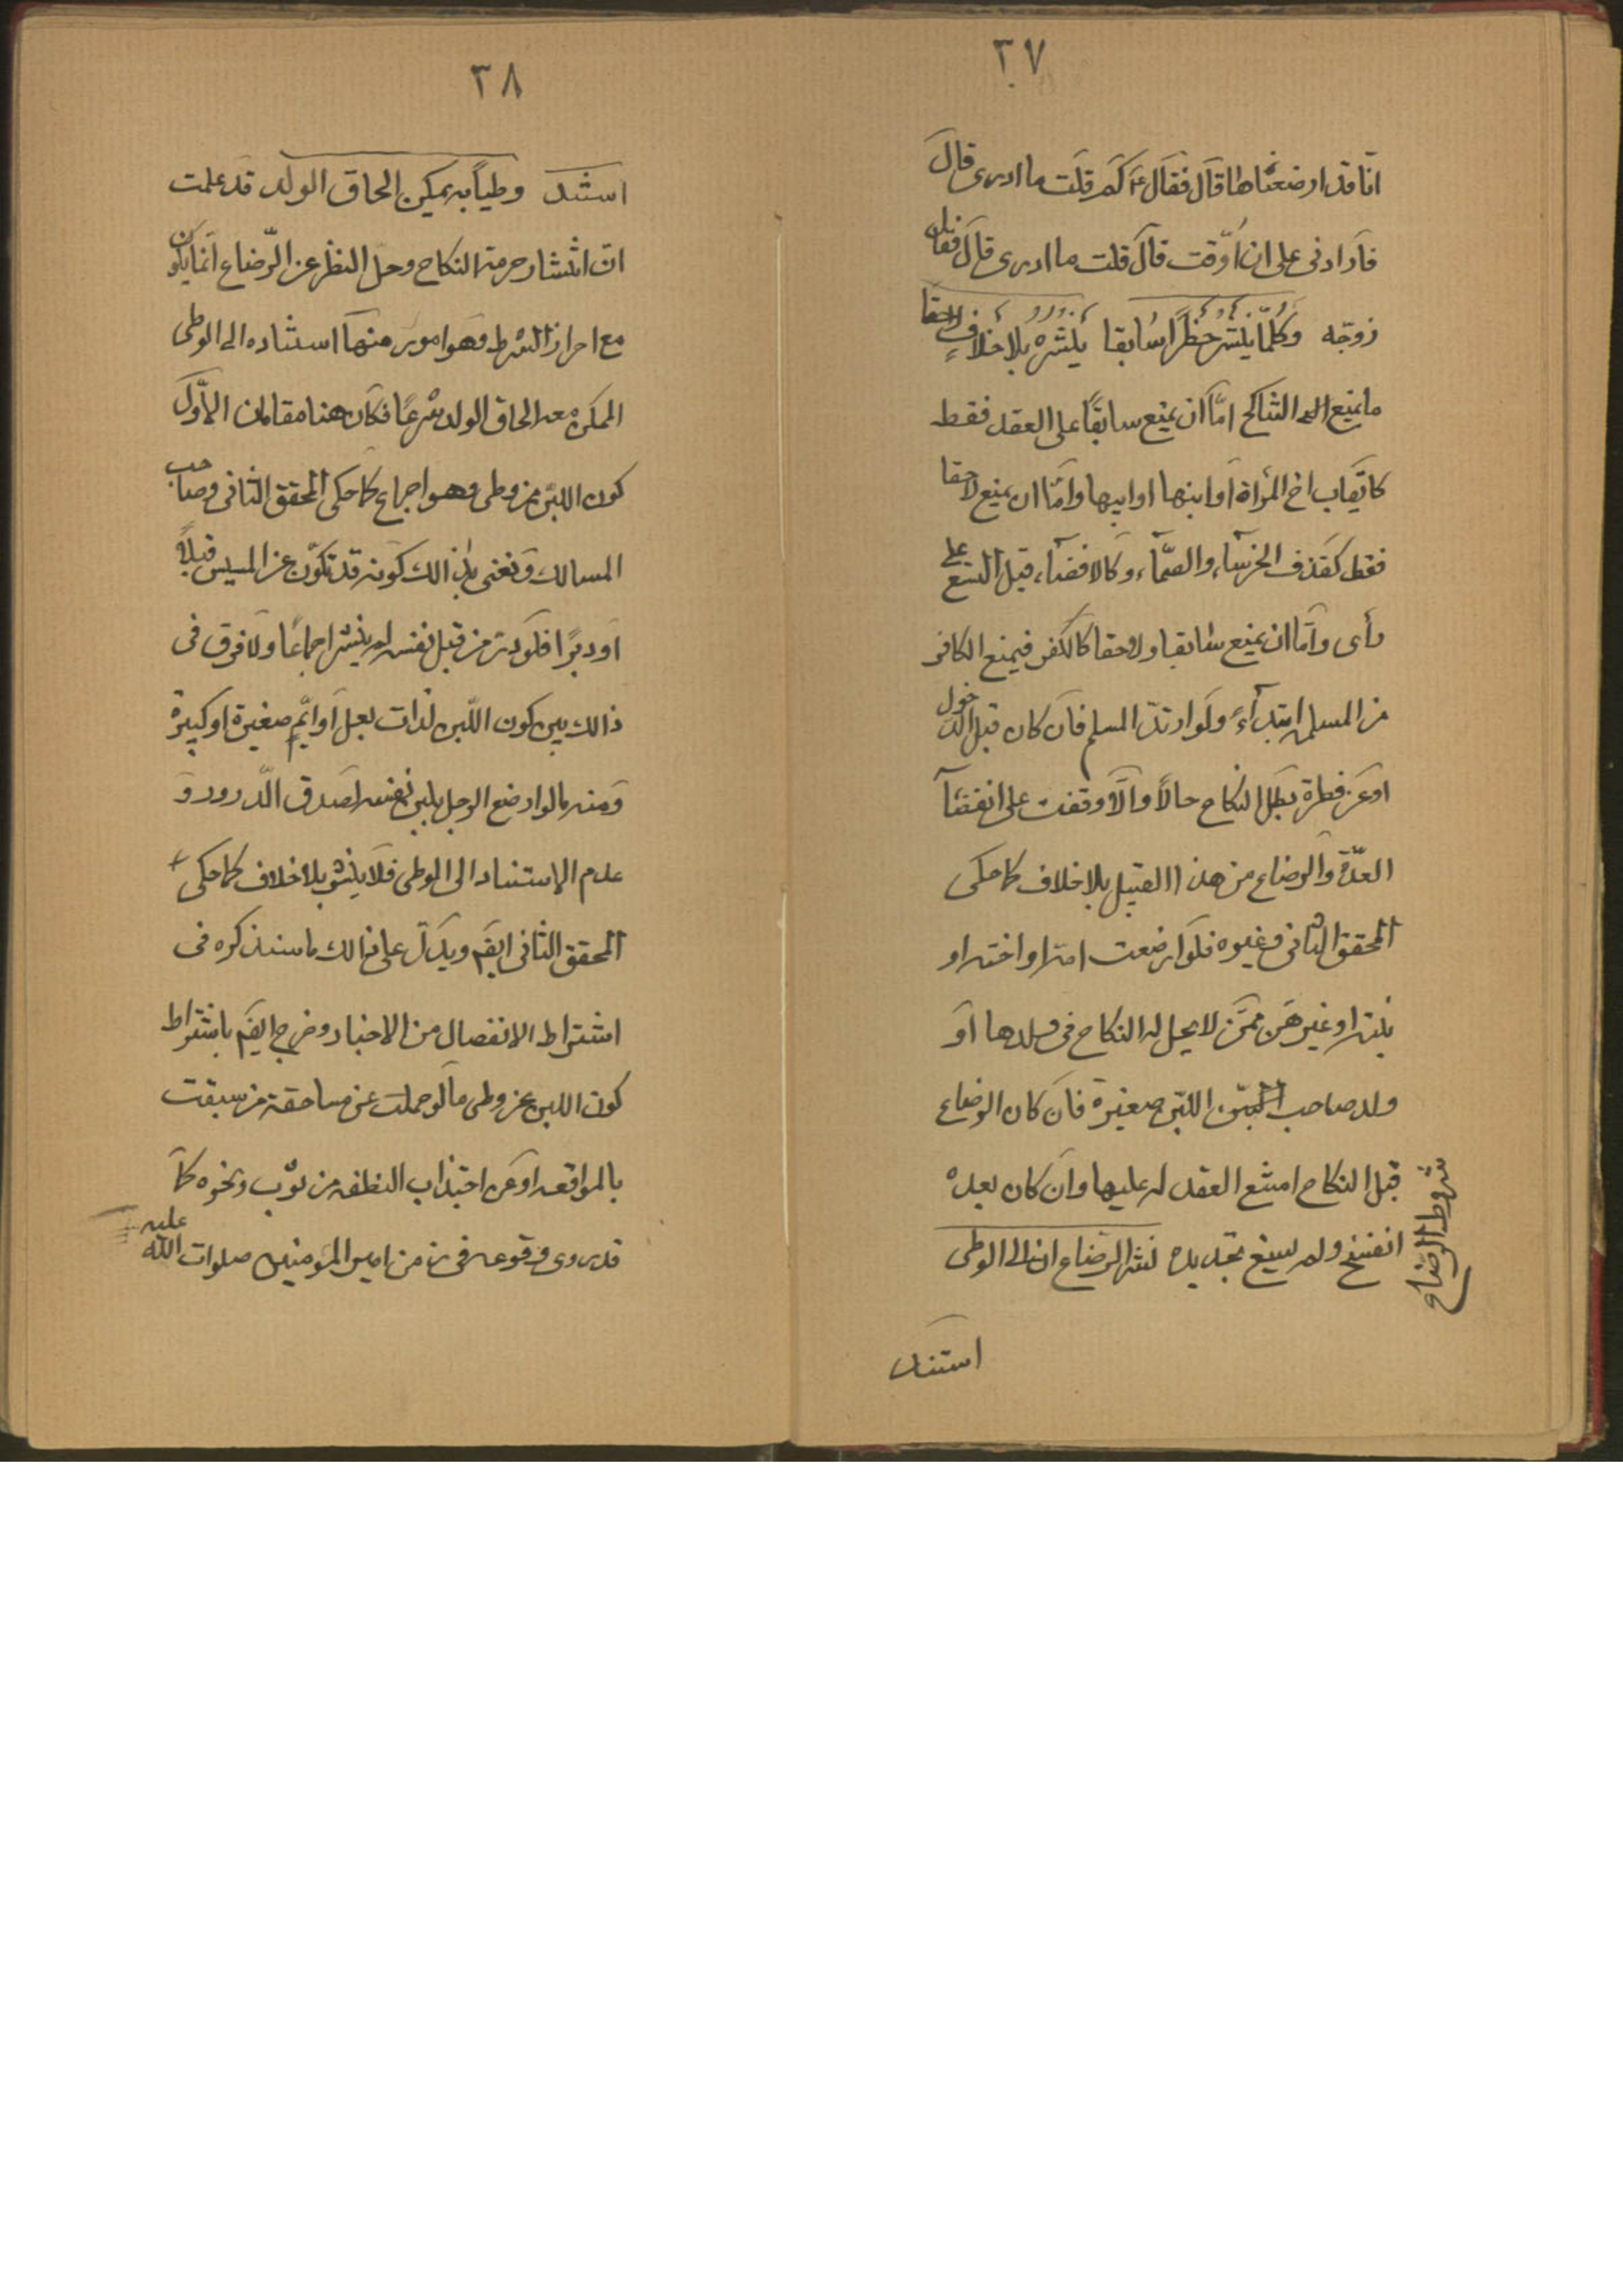 ٣٧
انّا قد ارضعناها قال فقال ع كم قلت ما ادرى قال
فارادنى على ان اوّقت قال قلت ما ادرى قال فقال
زوّجه وكلّما ينشر حظراً سابقا ينشره بلا خلافٍ لاحقا
ما يمنع التناكح امّا ان يمنع سابقًا على العقد فقط
اخ المرأة او ابنها او ابيها وامّا ان يمنع لاحقا
فقط كقذف الخرساء والصمّاء وكالافضاء قبل التسع على
رأى وامّا ان يمنع سابقا ولاحقا كالكفر فيمنع الكافر
من المسلمه ابتدآءً ولو ارتدّ المسلم فان كان قبل الدخول
او عن فطرة بطل النكاح حالاً والّا وقفت على انقضآء
العدّة والرضاع من هذا القبيل بلا خلاف كما حكى
المحقق الثانى وغيره فلو ارضعت امّه او اخته او
بنته او غيرهن ممّن لا يحل له النكاح فى ولدها او
ولد صاحب اللبن صغيرة فان كان الرضاع
قبل النكاح امتنع العقد له عليها وان كان بعده
انفسخ ولم يسغ تجديده نشر الرّضاع ان الى الوطى
شروط الرضاع
استند
٣٨
استند وطياً به يمكن الحاق الولد قد علمت
انّ انتشار حرمة النكاح وحلّ النظر عن الرّضاع انّما يكون
مع احراز الشرط وهو امور منها استناده الى الوطى
الممكن معه الحاق الولد شرعًا فكان هنا مقامان الاوّل
كون اللبن من وطى وهو اجماع كما حكى المحقق الثانى وصاحب
المسالك ونعنى بذالك كونه قد تكوّن عن المسيس قبلاً
او دبرًا فلو درّ من قبل نفسه لم ينشر اجماعًا ولا فرق فى
ذالك بين كون اللّبن لذات بعل او ايّم صغيرة او كبيرة
ومنه ما لو ارضع الرجل بلبن نفسه لصدق الدّرور و
عدم الاستناد الى الوطى فلا ينشر بلا خلاف كما حكى
المحقق الثانى ايضم ويدلّ على ذالك ما سنذكره فى
اشتراط الانفصال من الاخبار وخرج ايضم باشتراط
كون اللبن عن وطى ما لو حملت عن مساحقة من سبقت
بالمواقعه او عن اجتذاب النطفه من ثوب ونحوه كما
قد روى وقوعه فى زمن امير المؤمنين صلوات الله عليه